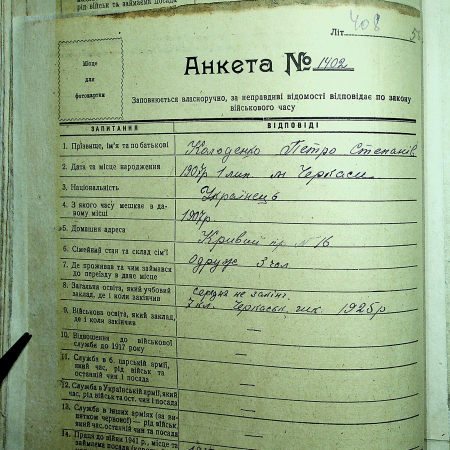 ріц військ та займаема посада
408
Літ.
Місце
для
фотокартки
Анкета № 1402
Заповнюється власноручно, за неправдиві відомості відповідає по закону
військового часу
ЗАПИТАННЯ
ВІДПОВІДІ
1. Прізвище, ім'я та по батькові
Колоденко Петро Степанів
2. Дата та місце народження
1907р 1 лип. м Черкаси
3. Національність
Українець
4. З якого часу мешкає в да-
ному місці
1907р.
5. Домашня адреса
Кривий пр № 16
6. Сімейний стан та склад сім'ї
Одруж 3 чол
7. Де проживав та чим займався
до переїзду в дане місце
8. Загальна освіта, який учбовий
заклад, де і коли закінчив
середня не закінч.
7 кл. Черкаськ. 1925р
9. Військова освіта, який заклад,
де і коли закінчив
10. Відношення до військової
служби до 1917 року
11. Служба в б. царській армії,
який час, рід військ та
останній чин і посада
12. Служба в Українській армії, який
час, рід військ та ост. чин і посада
13. Служба в інших арміях (за ви-
нятком червоної) — рід військ,
який час, останній чин та посада
14. Праця до війни 1941 р., місце та